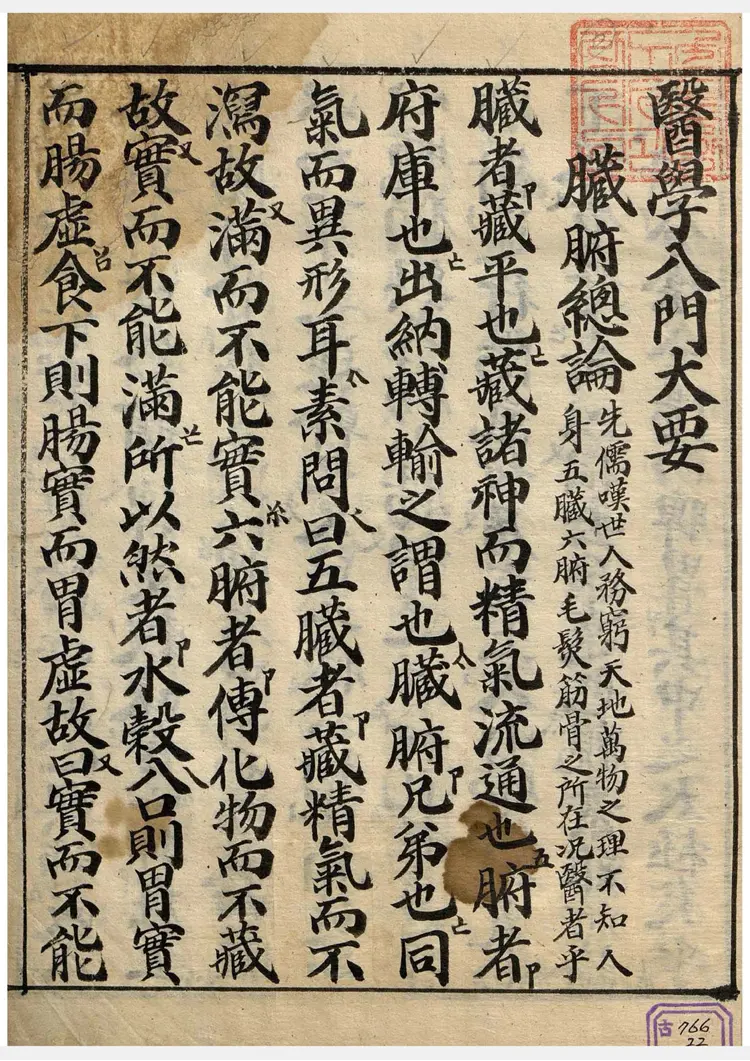 醫學入門大要
臓腑總論
先儒嘆世人務窮天地萬物之理不知人
身五臓六腑毛髮筋骨之所在况醫者乎
臓者藏平也藏諸神而精氣流通也腑者
府庫也出納轉輸之謂也臓腑兄弟也同
氣而異形耳素問曰五臓者藏精氣而不
瀉故滿而不能實六腑者傳化物而不藏
故實而不能滿所以然者水穀入口則胃實
而腸虛食下則腸實而胃虛故曰實而不能
古 766
22